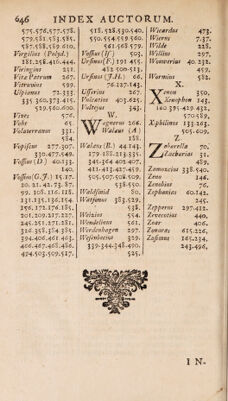 646 INDEX AUCTORUM.
575.576.577.578.
579.581.583.585.
587.588.589.610.
Vergilius (Polyd.)
181.258.416.444.
Veringius 251.
Vita Patrum 267.
Vitruvius 599.
Ulpianus 72.333.
335.360.373.415.
519.520.600.
Vives 576.
Vibe 65.
Volaterranus 331.
584.
Vopiscus 277.307.
330.477.549.
Vossius (D) 40.133.
140.
Vossius (G.J.) 15.17.
20.21.42.73.87.
96.107.108.128.
131.135.136.154.
156.172.176.185.
201.209.217.227.
245.251.271.281.
316.358.384.385.
394.406.461.463.
466.467.468.486.
474.503.509.517.
518.528.530.540.
550.554.559.560.
561.568.579.
Vossius (If) 503.
Ursinus (F.) 191.455.
482.500.513.
Ursinus (J.H.) 66.
76.127.143.
Usserius 267.
Vulcatius 403.625.
Vulteius 343.
W.
Wagnerus 266.
Walaus (A)
188.
Walaus (B.) 44.143.
179.188.213.335.
345.364.402.407.
411.413.427.459.
505.507.508.509.
538.550.
Waldschmid 80.
Watsonus 383.529.
538.
Weizius 554.
Wendelinus 561.
Werdenhagen 297.
Wesenbecius 329.
339.344.348.490.
525.
Wicardus 473.
Wierus 7.37.
Wilde 228.
Willius 297.
Wouwerius 40.214.
459.
Wurmius 582.
X.
Xenon 350.
Xenophon 143.
140.320.419.432.
570.589.
Xiphilinus 133.203.
505.609.
Z
Zabarella 70.
Zacharias 31.
32.
Zamoscius 338.540.
Zeno 146.
Zenobius 76.
Zephanius 60.142.
245.
Zepperus 297.412.
Zevecotius 440.
Zoar 406.
Zonaras 615.226.
Zosimus 165.234.
243.496.
I N-